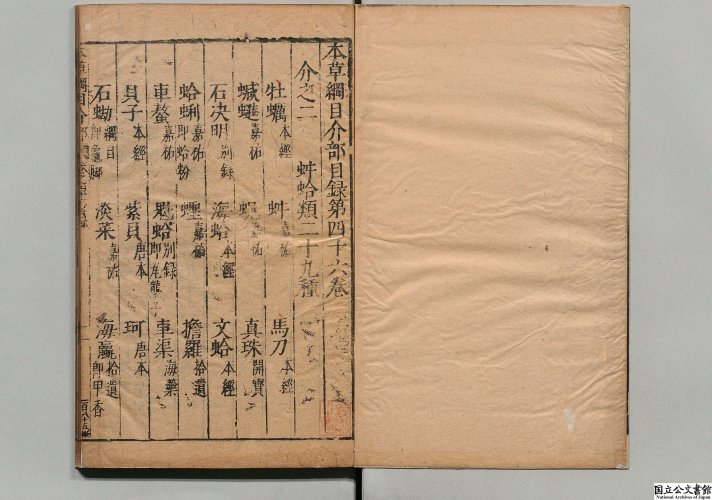 本草綱目介部目録第四十六卷
介之二 蚌蛤類二十九種
牡蠣本經 蚌嘉祐 馬刀本經
蝛𧍧嘉祐 蜆嘉祐 真珠開寶
石決明別録 海蛤本經 文蛤本經
蛤蜊嘉祐即蛤粉 蟶嘉祐 擔羅拾遺
車螯嘉祐 魁蛤別録即瓦壟子 車渠海藥
貝子本經 紫貝唐本 珂唐本
石蜐綱目 淡菜嘉祐 海蠃拾遺即甲香
本草綱目介部
國立公文書館
National Archives of Japan